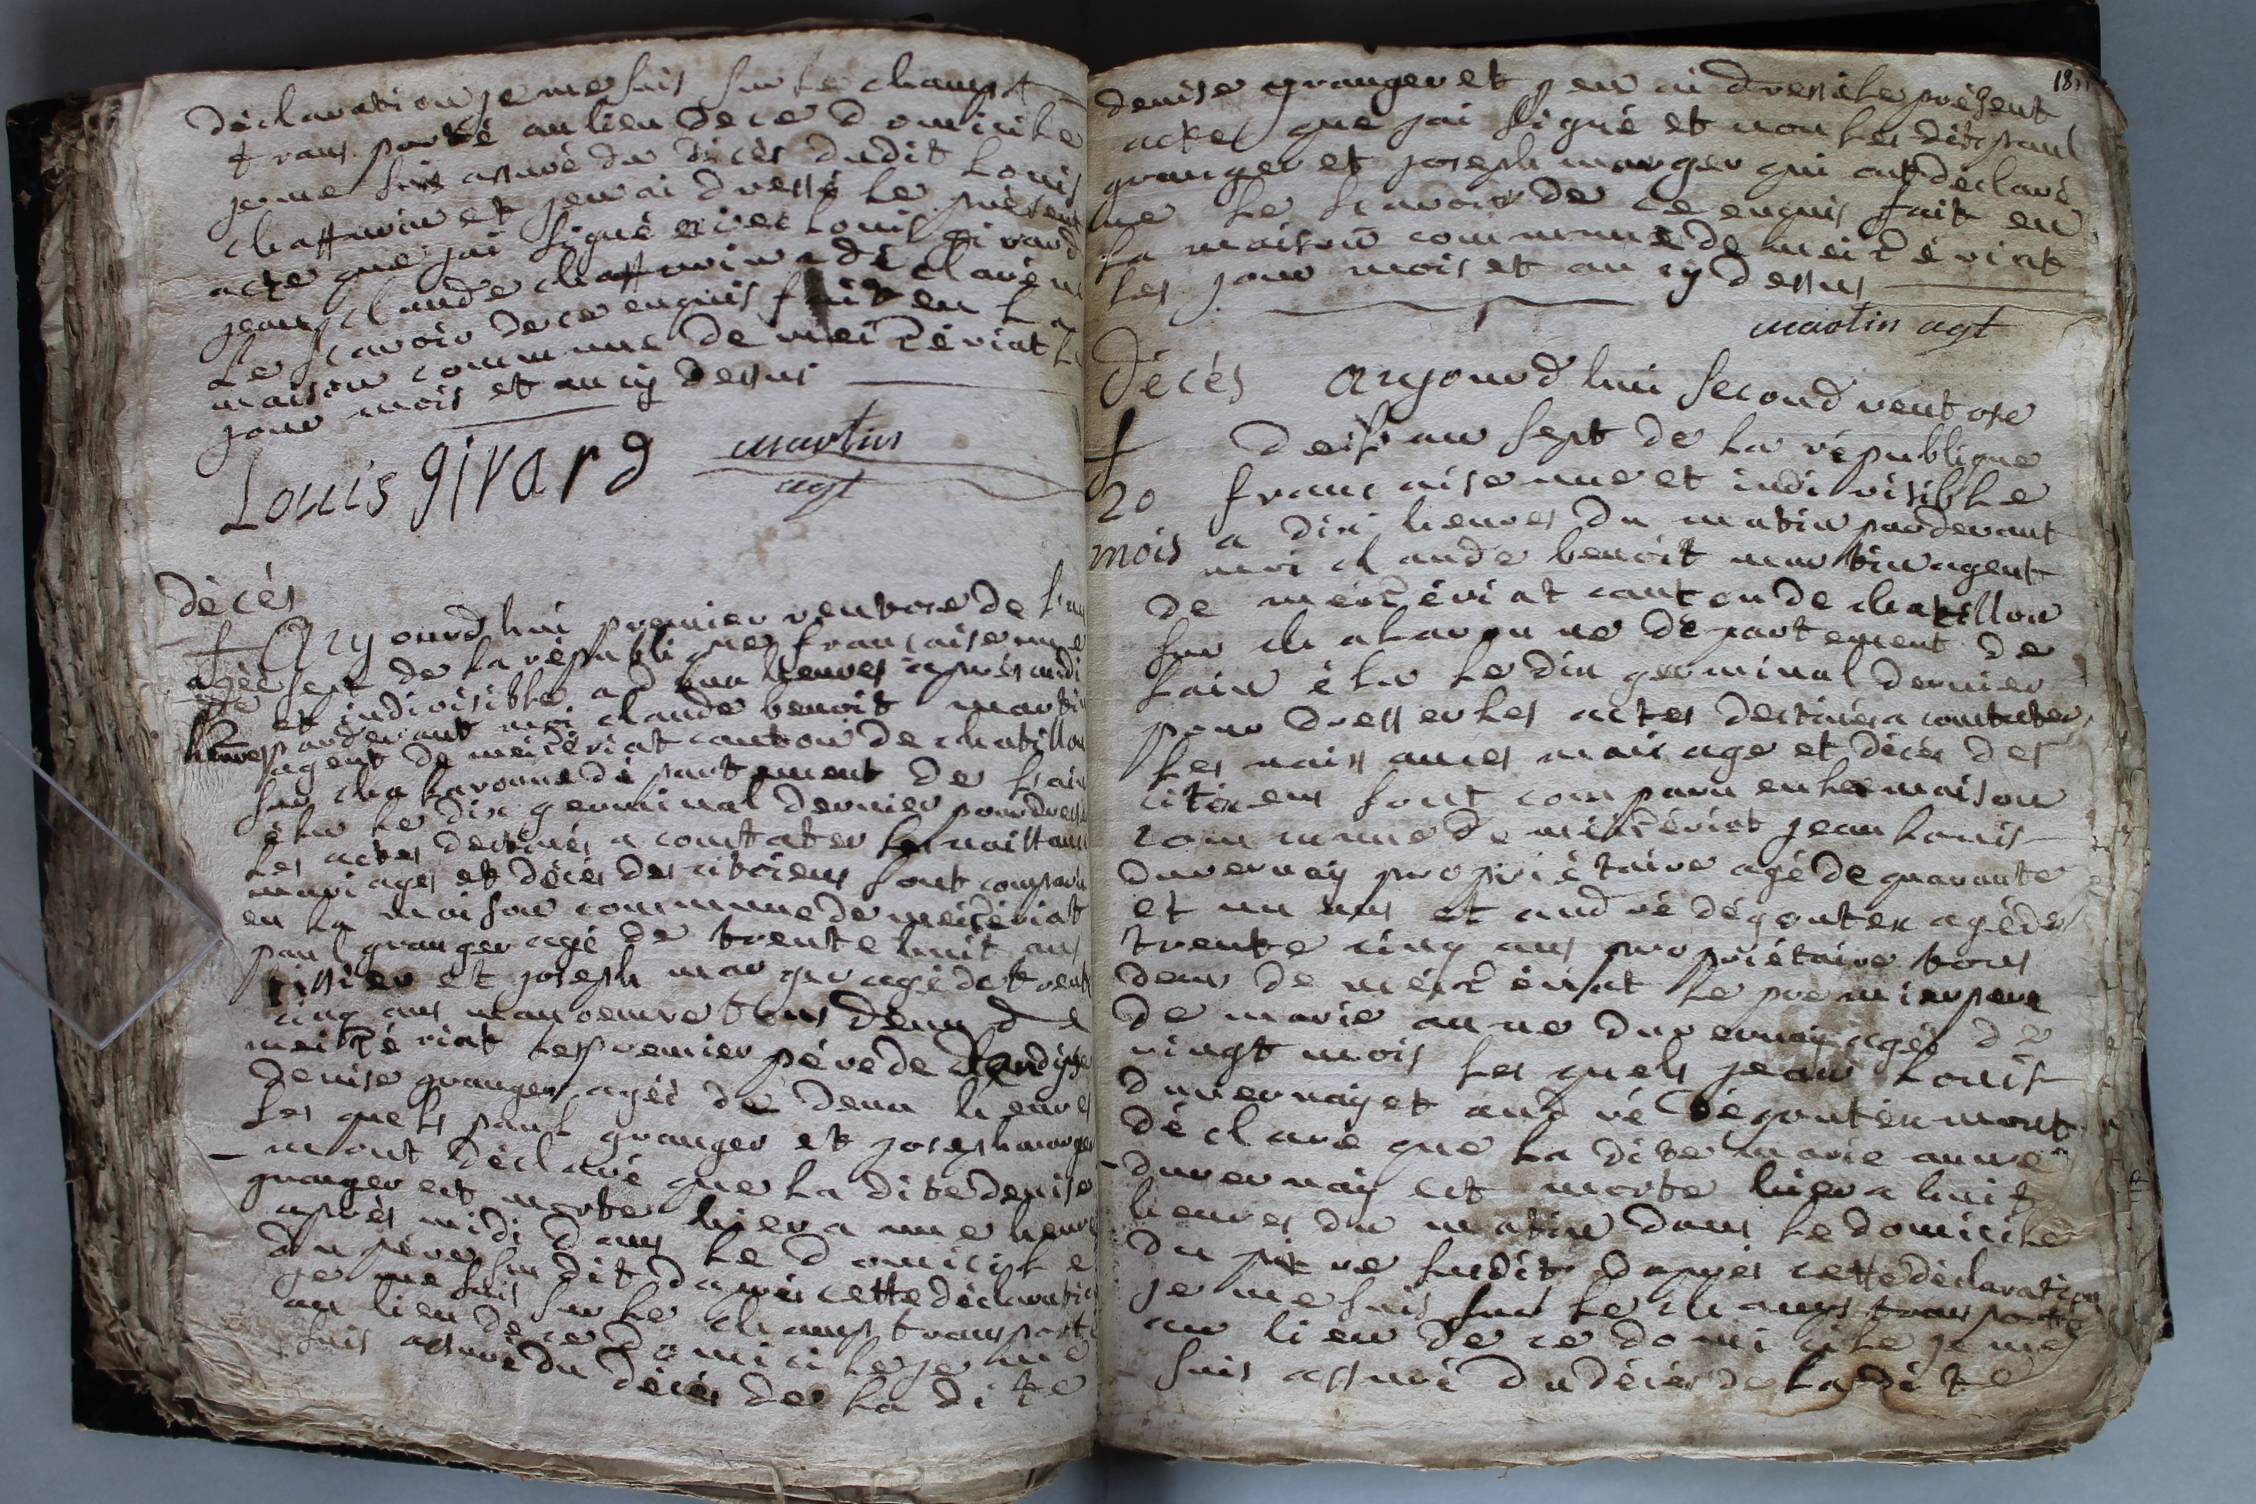 déclaration je me suis sur le champt
transporté au lieu de ce domicile
je me suis assuré du décès dudit louis
chaffurin et jen ai dressé le présent
acte que jai signé avec louis girard
jean claude chaffurin a déclaré ne
le scavoir de ce enquis fait en la
maison commune de meizériat le
jour mois et an cy dessus
Louis girard martin
agt
décès
f Aujourdhui premier ventose de lan
agée sept de la république francaise une
de et indivisible a deux heures après midi
2 heures pardevant moi claude benoit martin
agent de meizériat canton de chatillon
sur chalaronne département de lain
élu le dix germinal dernier pour dresser
les actes destinés a constater les naissances
mariages et décès des citoiens sont comparu
en la maison commune de meizériat
paul granger agé de trente huit ans
tissier et joseph marger agé de trente
cinq ans manoeuvre tous deux de
meizériat le premier père de
denise granger agée de deux heures
les quels paul granger et joseph marger
mont déclaré que la dite denise
granger est morte hier a une heure
après midi dans le domicile
du père susdit daprès cette déclaration
je me suis sur le champs transporté
au lieu de ce domicile je me
suis assuré du décès de la dite
18
denise granger et jen ai dressé le présent
acte que jai signé et non les dits paul
granger et joseph marger qui ont déclaré
ne le scavoir de ce enquis fait en
la maison commune de meizériat
les jour mois et an cy dessus
martin agt
Décès Aujourdhui second ventose
f deix an sept de la république
20 francaise une et indivisible
mois a dix heures du matin pardevant
moi claude benoit martin agent
de meizériat canton de chatillon
sur chalaronne département de
lain élu le dix germinal dernier
pour dresser les actes destinés a contater
les naissances mariage et décès des
citoiens sont comparu en la maison
commune de meizériat jean louis
duvernay propriétaire agé de quarante
et un ans et andré dégoutex agé de
trente cinq ans propriétaire tous
deux de meizériat le premier pere
de marie anne duvernay agée de
vingt mois les quels jean louis
duvernay et andré dégoutex mont
déclaré que la dite marie anne
duvernay est morte hier a huit
heures du matin dans le domicile
du père susdit daprès cette déclaration
je me suis sur le champs transporté
au lieu de ce domicile je me
suis assuré du décès de la dite